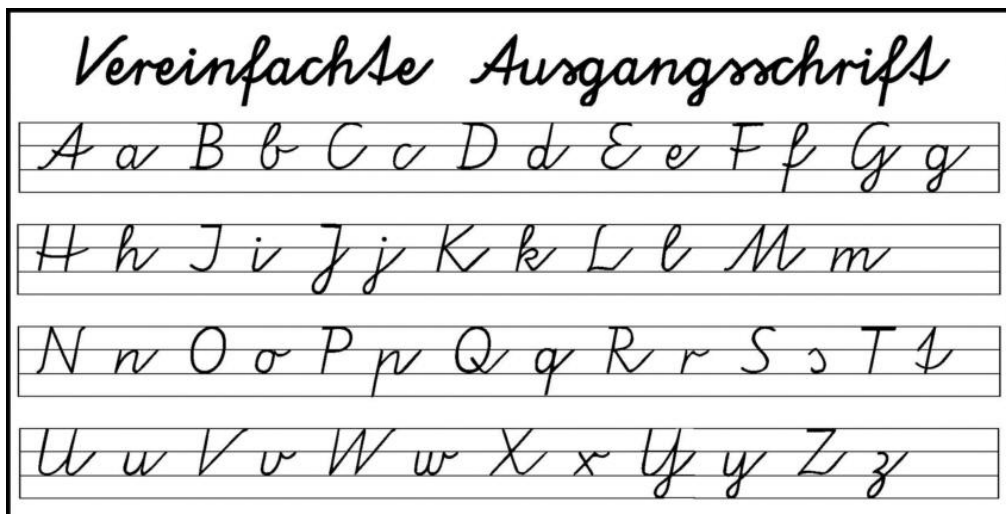 Vereinfachte Ausgangsschrift
A a B b C c D d E e F f G g
H h I i J j K k L l M m
N n O o P p Q q R r S s T t
U u V v W w X x Y y Z z